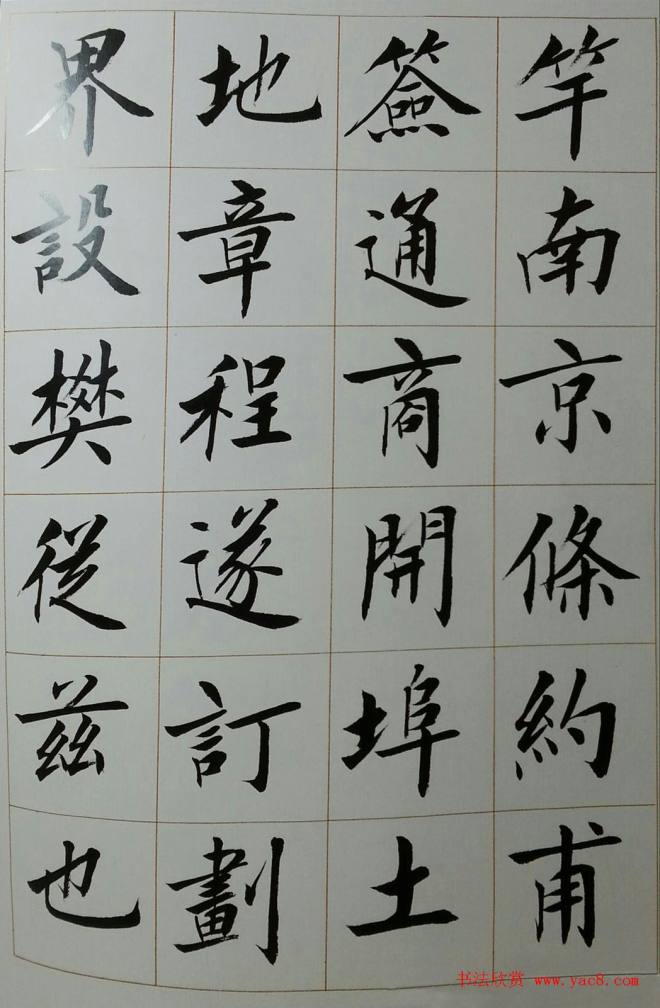 竿南京條約甫
簽通商開埠土
地章程遂訂劃
界設樊從茲也
书法欣赏 www.yac8.com